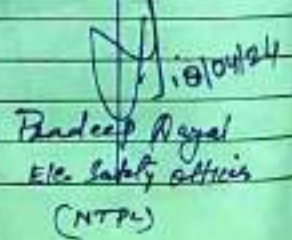 18/04/24
Pradeep Dayal
Ele. Safety officer
(NTPL)